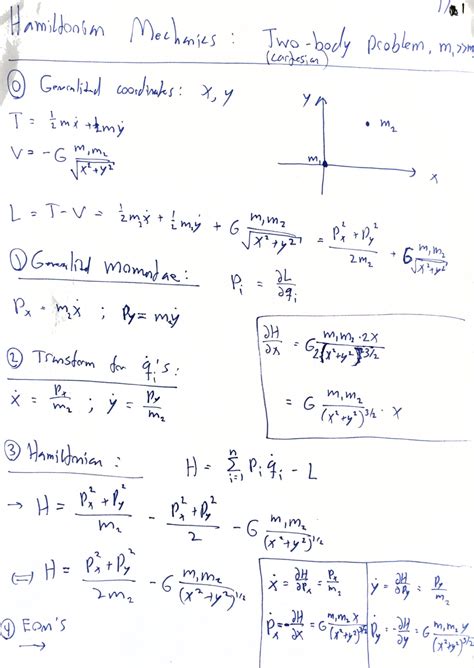 1/1
Hamiltonian Mechanics : Two-body problem, m₁>>m₂
(cartesian)
⓪ Generalized coordinates: x, y
T = ½mẋ + ½mẏ
V = -G m₁m₂/√(x²+y²)
y
m₂
m₁
x
L = T-V = ½m₂ẋ + ½m₂ẏ + G m₁m₂/√(x²+y²) = (Px²+Py²)/2m₂ + G m₁m₂/√(x²+y²)
① Generalized momentae: Pᵢ = ∂L/∂q̇ᵢ
Px = m₂ẋ ; Py = m₂ẏ
∂H/∂x = G m₁m₂·2x/2(x²+y²)^3/2
= G m₁m₂/(x²+y²)^3/2 · x
② Transform for q̇ᵢ's:
ẋ = Px/m₂ ; ẏ = Py/m₂
③ Hamiltonian: H = Σⁿᵢ₌₁ Pᵢ q̇ᵢ - L
→ H = (Px²+Py²)/m₂ - (Px²+Py²)/2 - G m₁m₂/(x²+y²)^1/2
⟺ H = (Px²+Py²)/2m₂ - G m₁m₂/(x²+y²)^1/2
④ EOM's
→
ẋ = ∂H/∂Px = Px/m₂
ẏ = ∂H/∂Py = Py/m₂
Ṗx = -∂H/∂x = G m₁m₂x/(x²+y²)^3/2
Ṗy = -∂H/∂y = G m₁m₂y/(x²+y²)^3/2